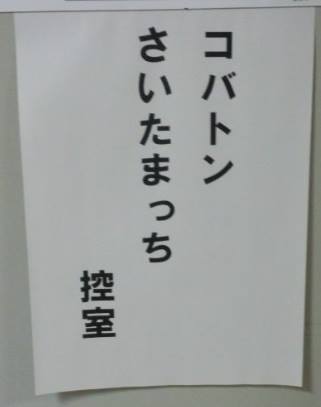 コバトン
さいたまっち
控室